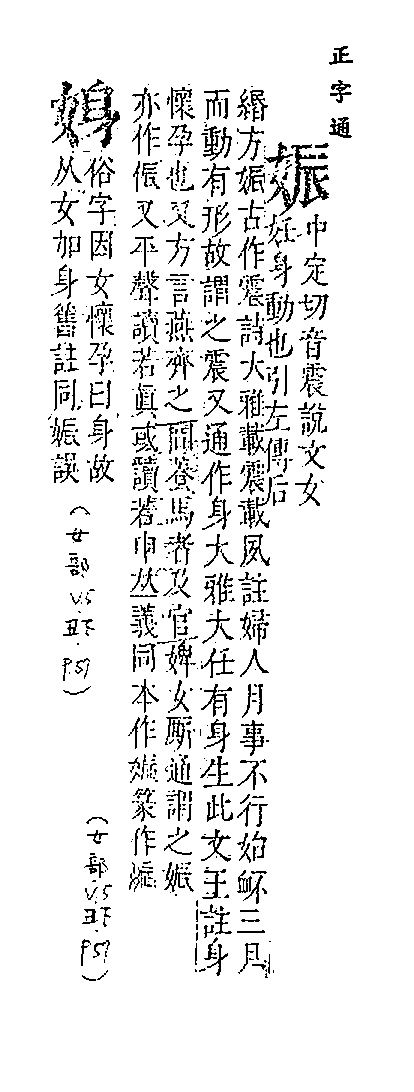 正字通
娠
中定切音震說文女
妊身動也引左傳后
緡方娠古作震詩大雅載震載夙註婦人月事不行始衃三月
而動有形故謂之震又通作身大雅大任有身生此文王註身
懷孕也又方言燕齊之間養馬者及官婢女厮通謂之娠
亦作侲又平聲讀若眞或讀若申𠀤義同本作娠篆作
俗字因女懷孕曰身故
从女加身舊註同娠誤
(女部 V.5 丑下. P.57)
(女部. V.5 丑下. P.57)